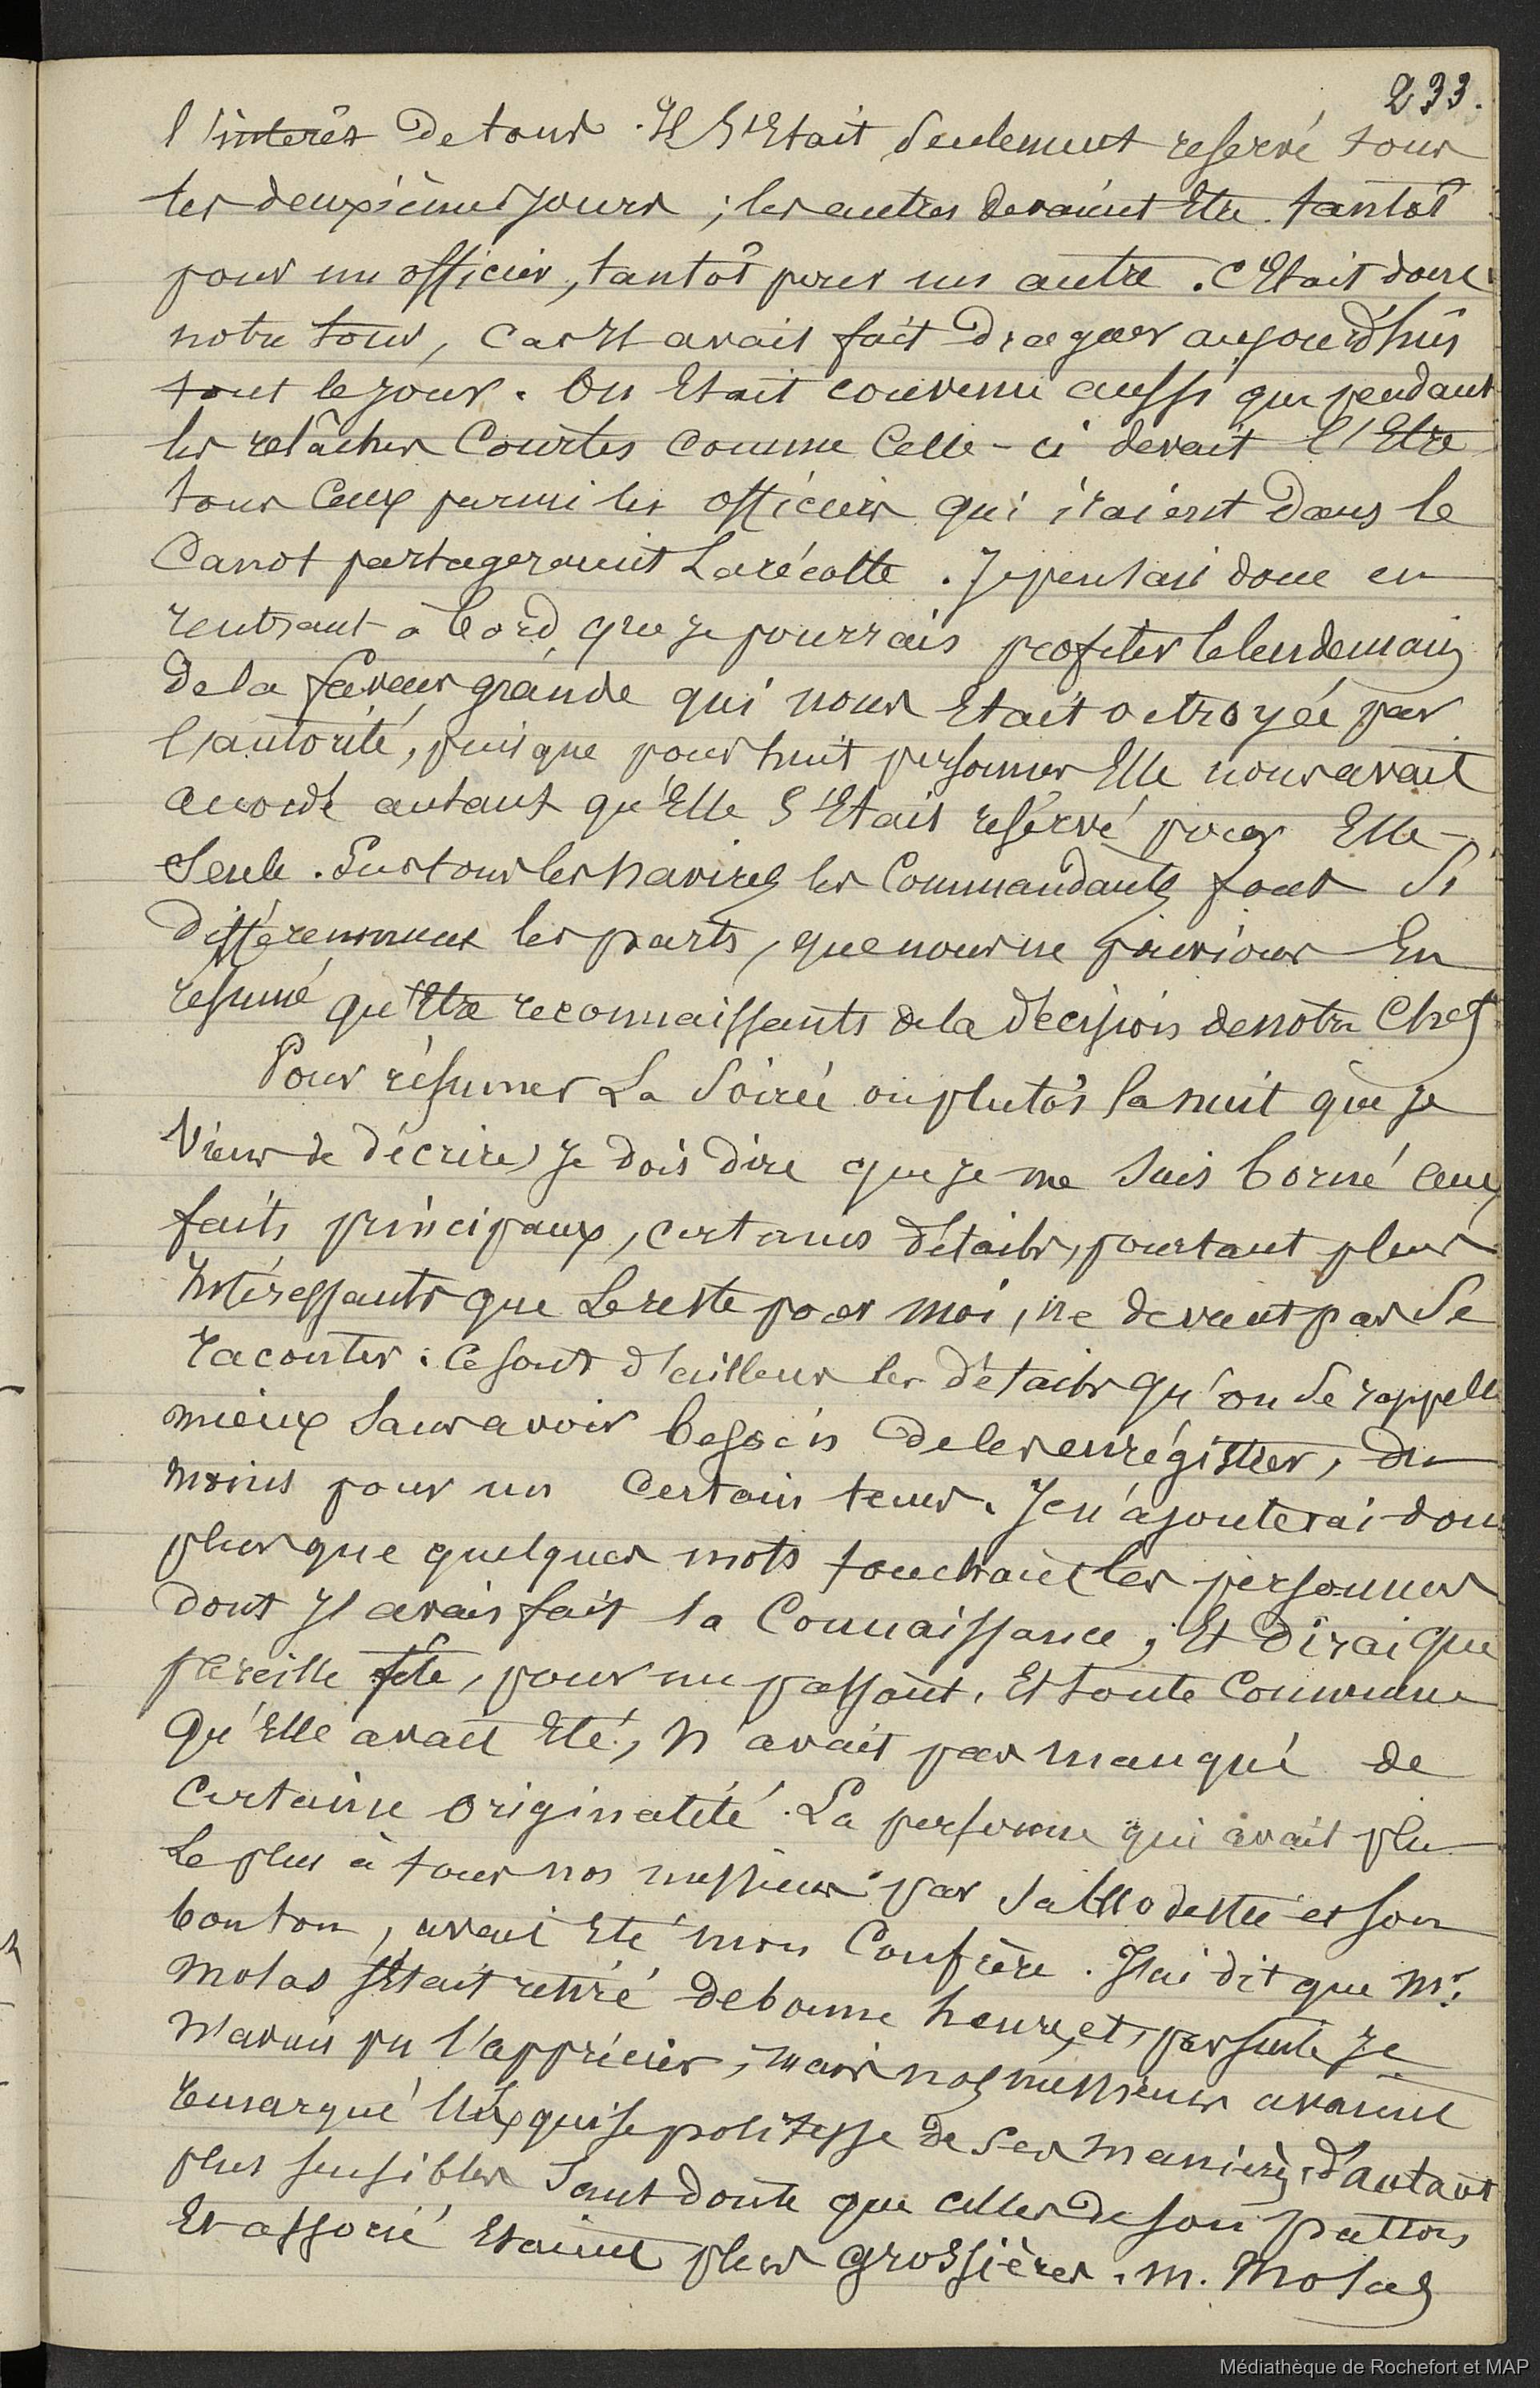 233.
l'interêt de tous. Il s'Etait seulement reservé tous
les deuxièmes jours ; les autres devaient Etre tantôt
pour un officier, tantôt pour un autre. C'Etait donc
notre tour, car Il avait fait draguer aujourd'hui
tout le jour. On Etait convenu aussi que pendant
les relâches Courtes comme Celle-ci devait l'Etre
tous Ceux parmi les officiers qui iraient dans le
Canot partageraient La récolte. Je pensais donc en
rentrant à bord, que je pourrais profiter le lendemain
de la faveur grande qui nous Etait octroyée par
l'autorité, puisque pour huit personnes Elle nous avait
accordé autant qu'Elle s'Etait reservé pour Elle-
Seule. Sur tous les navires les Commandants font si
différemment les parts, que nous ne pouvions En
résumé qu'Etre reconnaissants de la décision de notre Chef
Pour résumer La Soirée ou plutôt la nuit que je
Viens de décrire, je dois dire que je me suis borné aux
faits principaux, certains détails, pourtant plus
Intéressants que Le reste pour moi, ne devant pas Se
raconter. Ce sont d'ailleurs les détails qu'on se rappelle
mieux sans avoir besoin de les enrégistrer, du
moins pour un certain tems. Je n'ajouterai donc
plus que quelques mots touchant les personnes
dont J'avais fait la Connaissance, Et dirai que
pareille fête, pour un passant, Et toute Commune
qu'Elle avait Eté, n'avait pas manqué de
certaine originalité. La personne qui avait plu
Le plus à tous nos messieurs par sa Modestie et son
bon ton, avait Eté mon Confrère. J'ai dit que Mr.
Molas s'Etait retiré de bonne heure, et, par suite je
n'avais pu l'apprécier, mais nos messieurs avaient
remarqué l'Exquise politesse de ses manières, d'autant
plus sensibles sans doute que celles de son patron
Et associé Etaient plus grossières. M. Molas
Médiathèque de Rochefort et MAP